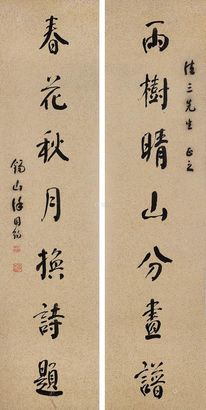 三先生 正之
雨樹晴山分畫譜
春花秋月換詩題
錫山